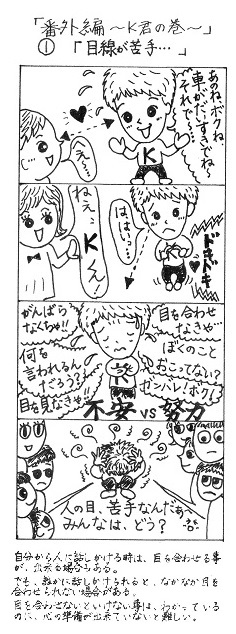 「番外編 〜K君の巻〜」
①「目線が苦手…」
あのねボクね
車がだいすきでね〜
それで〜…
え…っ
K
ねぇ…
Kくん
はいっ…
ドキドキ
がんばら
なくちゃ!!
何を
言われるん
だろう?
目を見なきゃ!!
目を合わせ
なきゃ…
ぼくのこと
おこってない?
ガンバレ!ボク!
K
不安 vs 努力
人の目、苦手なんだぁ〜
みんなは、どう?
自分から人に話しかける時は、目を合わせる事
が、出来る場合もある。
でも、誰かに話しかけられると、なかなか目を
合わせられない場合がある。
目を合わせないといけない事は、わかっている
のに、心の準備が出来ていないと難しい。